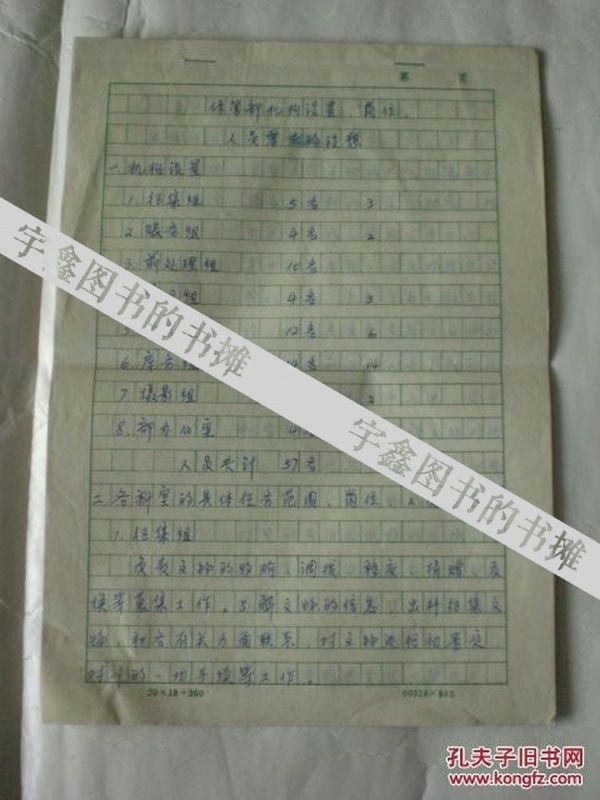 第 页
保管部机构设置、岗位、
人员编制的设想
一、机构设置
1. 征集组 5名 3
2. 账务组 4名 2
3. 前处理组 10名
组 4名 3
5. 12名 6
6. 库房组 14名 14
7. 摄影组 2
8. 部办公室 4名
人员共计 57名
二、各科室的具体任务范围、岗位、人
1. 征集组
负责文物的收购、调拨、移交、捐赠、交
换等蒐集工作。了解文物的信息,出外征集文
物,和各有关方面联系,对文物进行初鉴定,
的一切手续等工作。
20×18=360 00318×835
宇鑫图书的书摊
宇鑫图书的书摊
孔夫子旧书网
www.kongfz.com